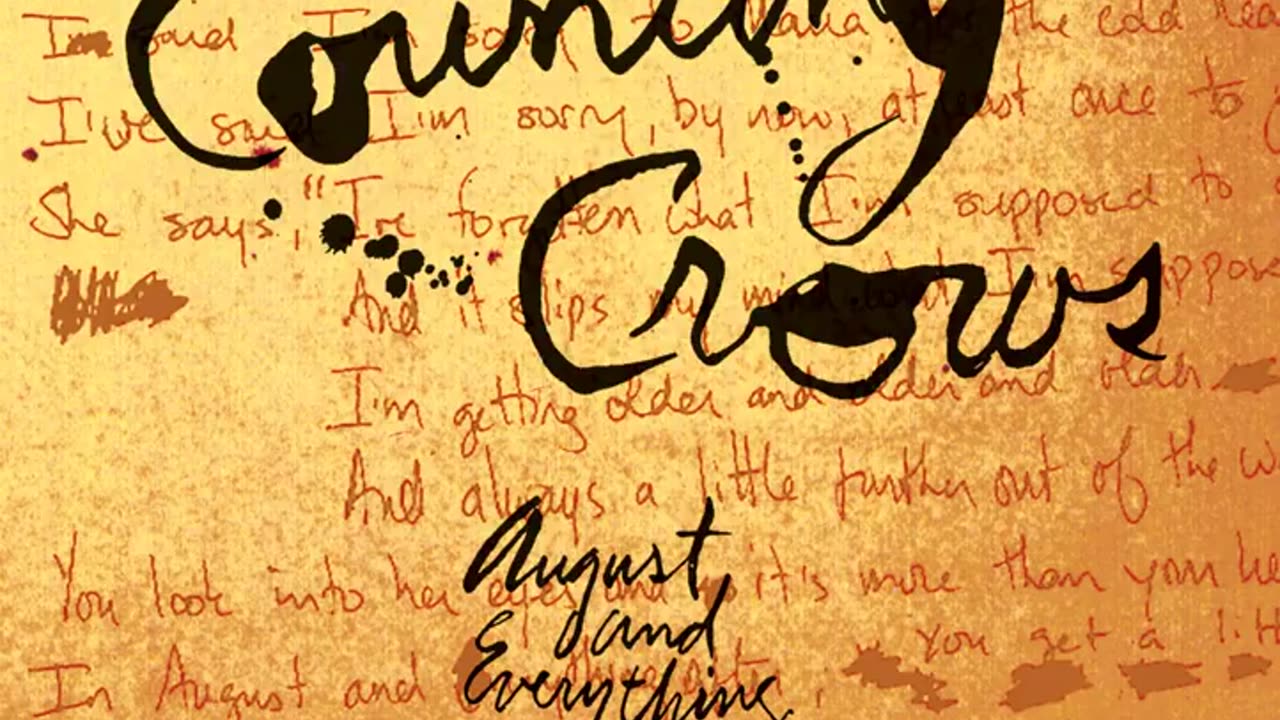 Counting
Crows
said I'm sorry to Maria the cold
I've said I'm sorry, by now, at least once to
She says, "I've forgotten what I'm supposed to
And it slips my mind, but I'm
I'm getting older and older and older
And always a little further out of the
You look into her eyes and it's more than your
you get a
In August and
August
and
Everything